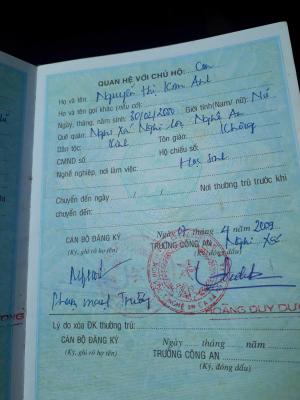 QUAN HỆ VỚI CHỦ HỘ: Con
Họ và tên: Nguyễn Thị Kim Anh
Họ và tên gọi khác (nếu có):
Ngày, tháng, năm sinh: 30/01/2000 Giới tính(Nam/ nữ): Nữ
Quê quán: Nghi Xá Nghi Lộc Nghệ An
Dân tộc: Kinh Tôn giáo: Không
CMND số: Hộ chiếu số:
Nghề nghiệp, nơi làm việc: Học sinh
Nơi thường trú trước khi
Chuyển đến ngày / /
chuyển đến:
Ngày 07 tháng 4 năm 2009
CÁN BỘ ĐĂNG KÝ TRƯỞNG CÔNG AN Nghi Xá
(Ký, ghi rõ họ tên) (Ký, đóng dấu)
HOÀNG DUY
Lý do xóa ĐK thường trú:
Ngày tháng năm
CÁN BỘ ĐĂNG KÝ TRƯỞNG CÔNG AN
(Ký, ghi rõ họ tên) (Ký, đóng dấu)